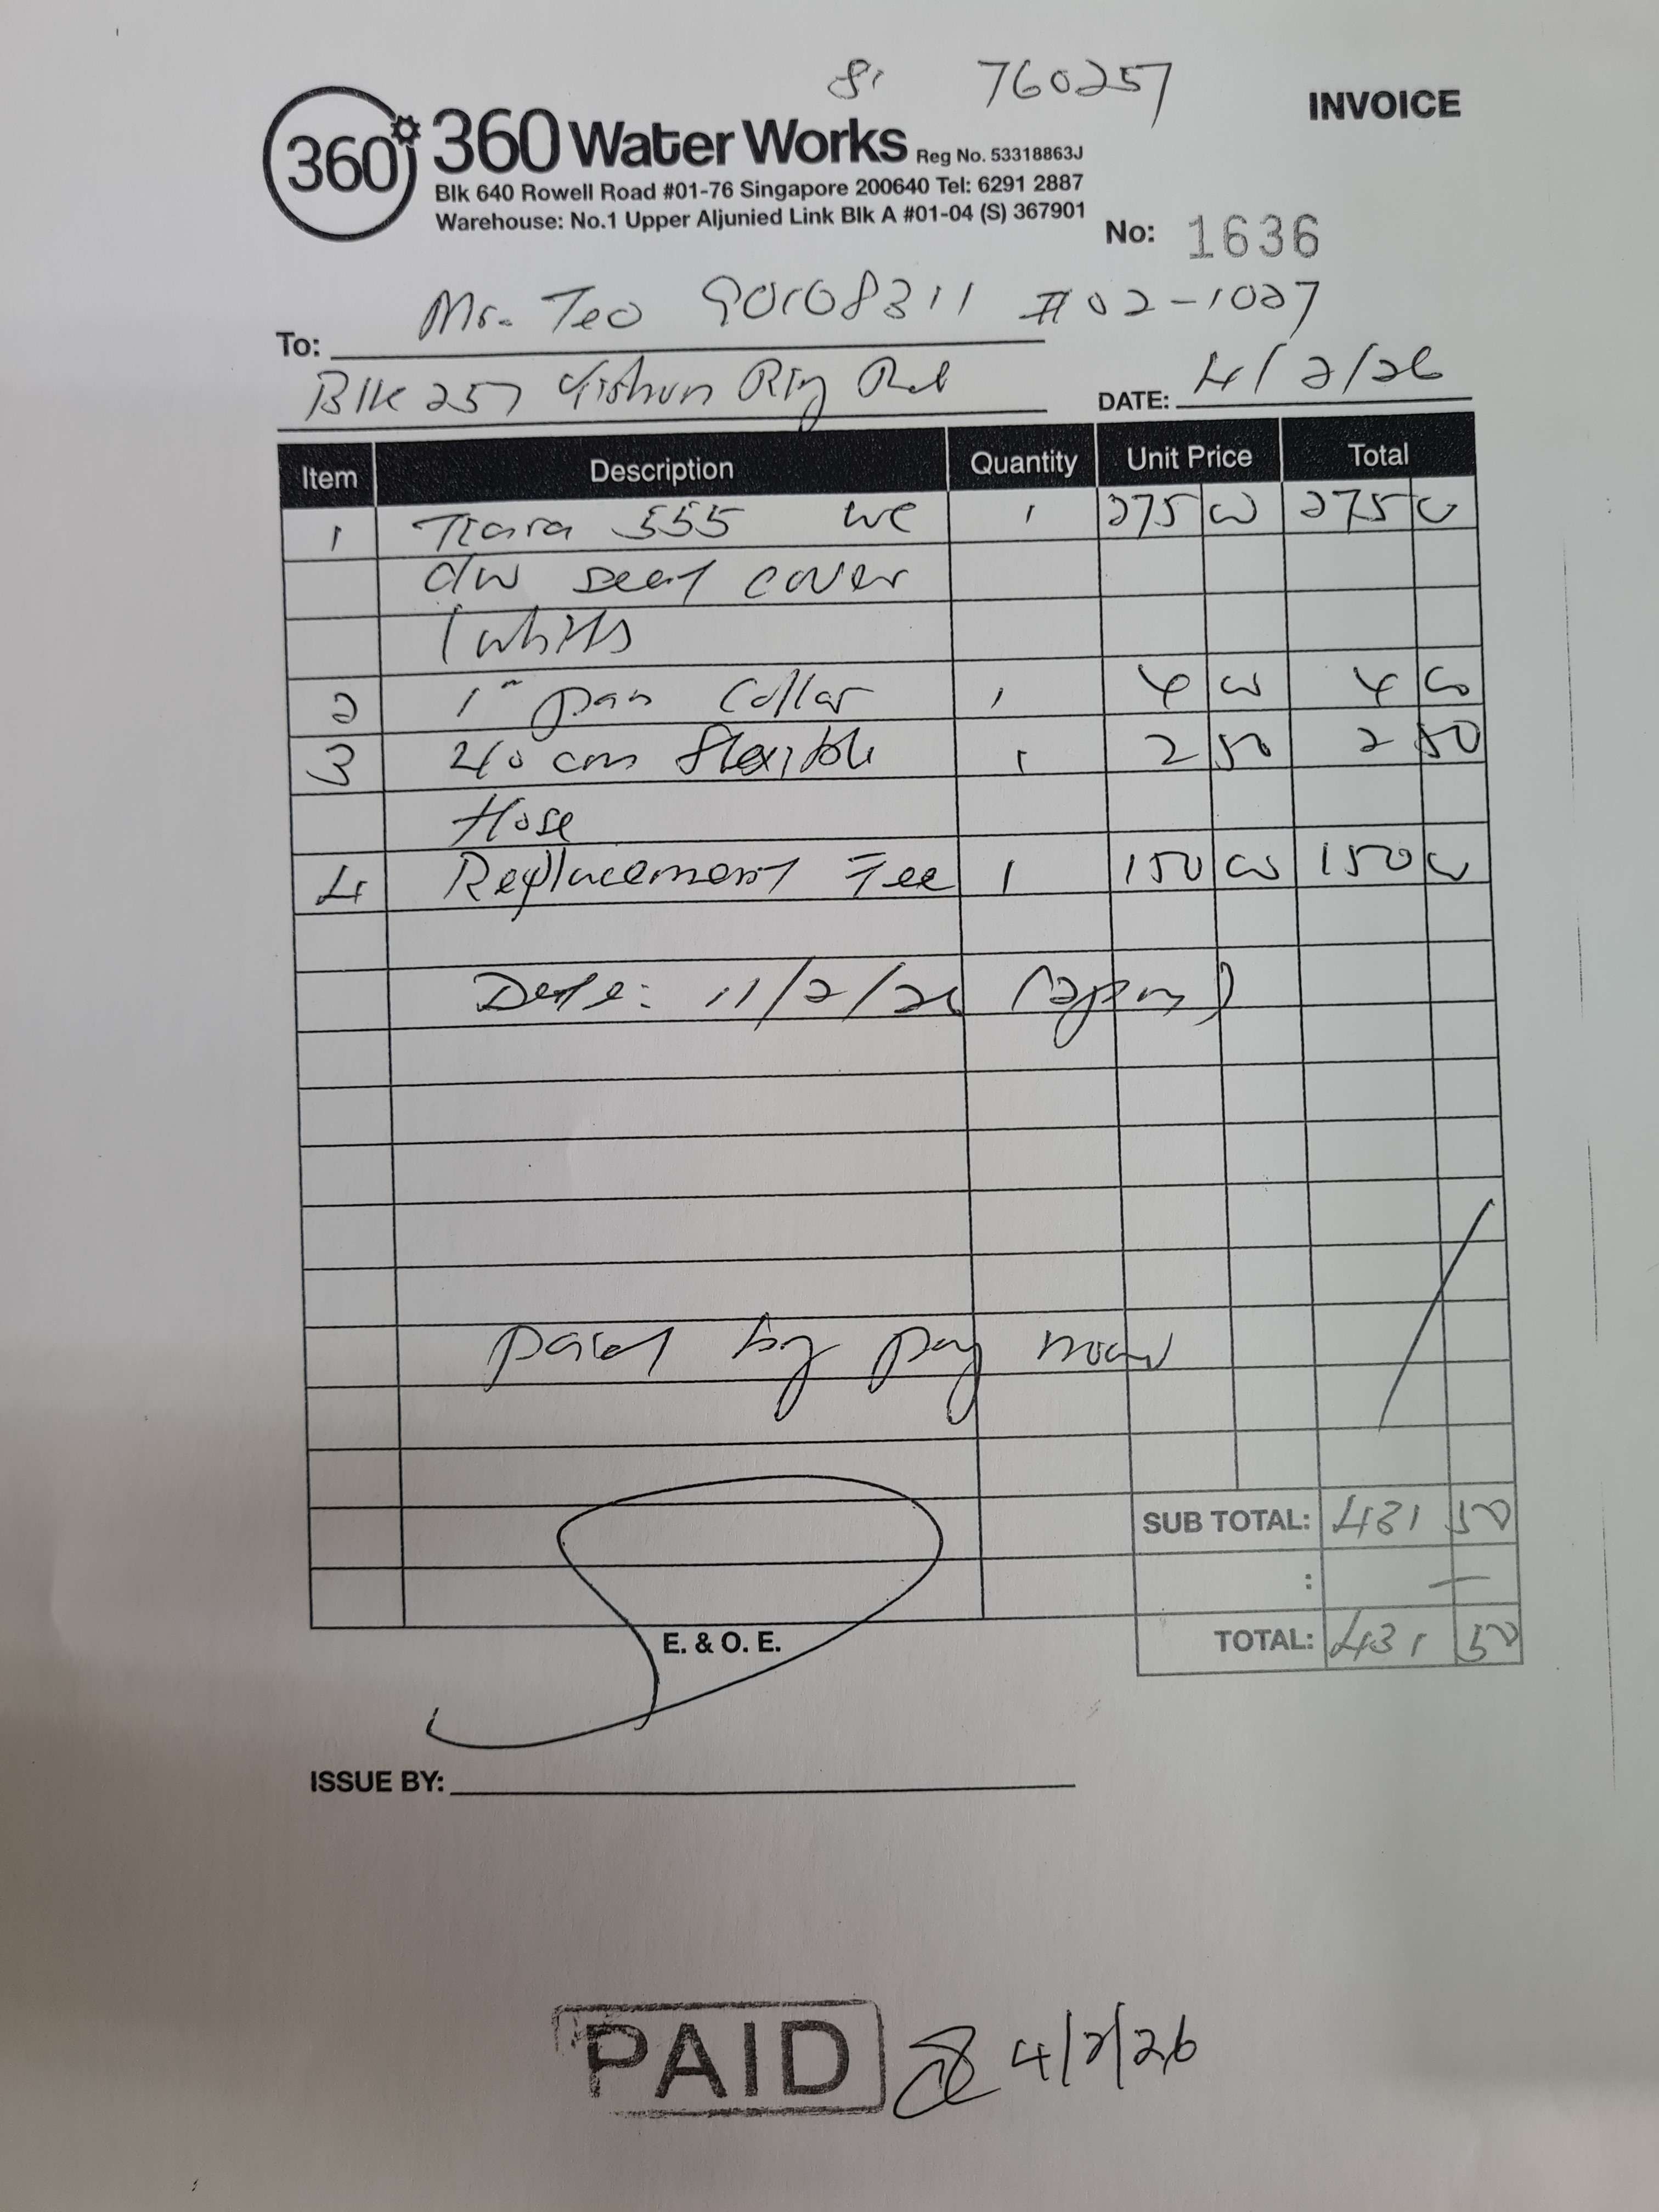 S' 760257
INVOICE
360° 360 Water Works Reg No. 53318863J
Blk 640 Rowell Road #01-76 Singapore 200640 Tel: 6291 2887
Warehouse: No.1 Upper Aljunied Link Blk A #01-04 (S) 367901
No: 1636
To: Mr. Teo 90108311 #02-1027
Blk 257 Yishun Ring Rd
DATE: 4/2/26
Item Description Quantity Unit Price Total
1 Tiara 555 WC 1 275 00 275 00
c/w seat cover
(white)
2 1" pan collar 1 4 00 4 00
3 40 cm flexible 1 2 50 2 50
Hose
4 Replacement Fee 1 150 00 150 00
Date: 11/2/26 (2pm)
Paid by pay now
SUB TOTAL: 431 50
: —
TOTAL: 431 50
E. & O. E.
ISSUE BY:
PAID 4/2/26